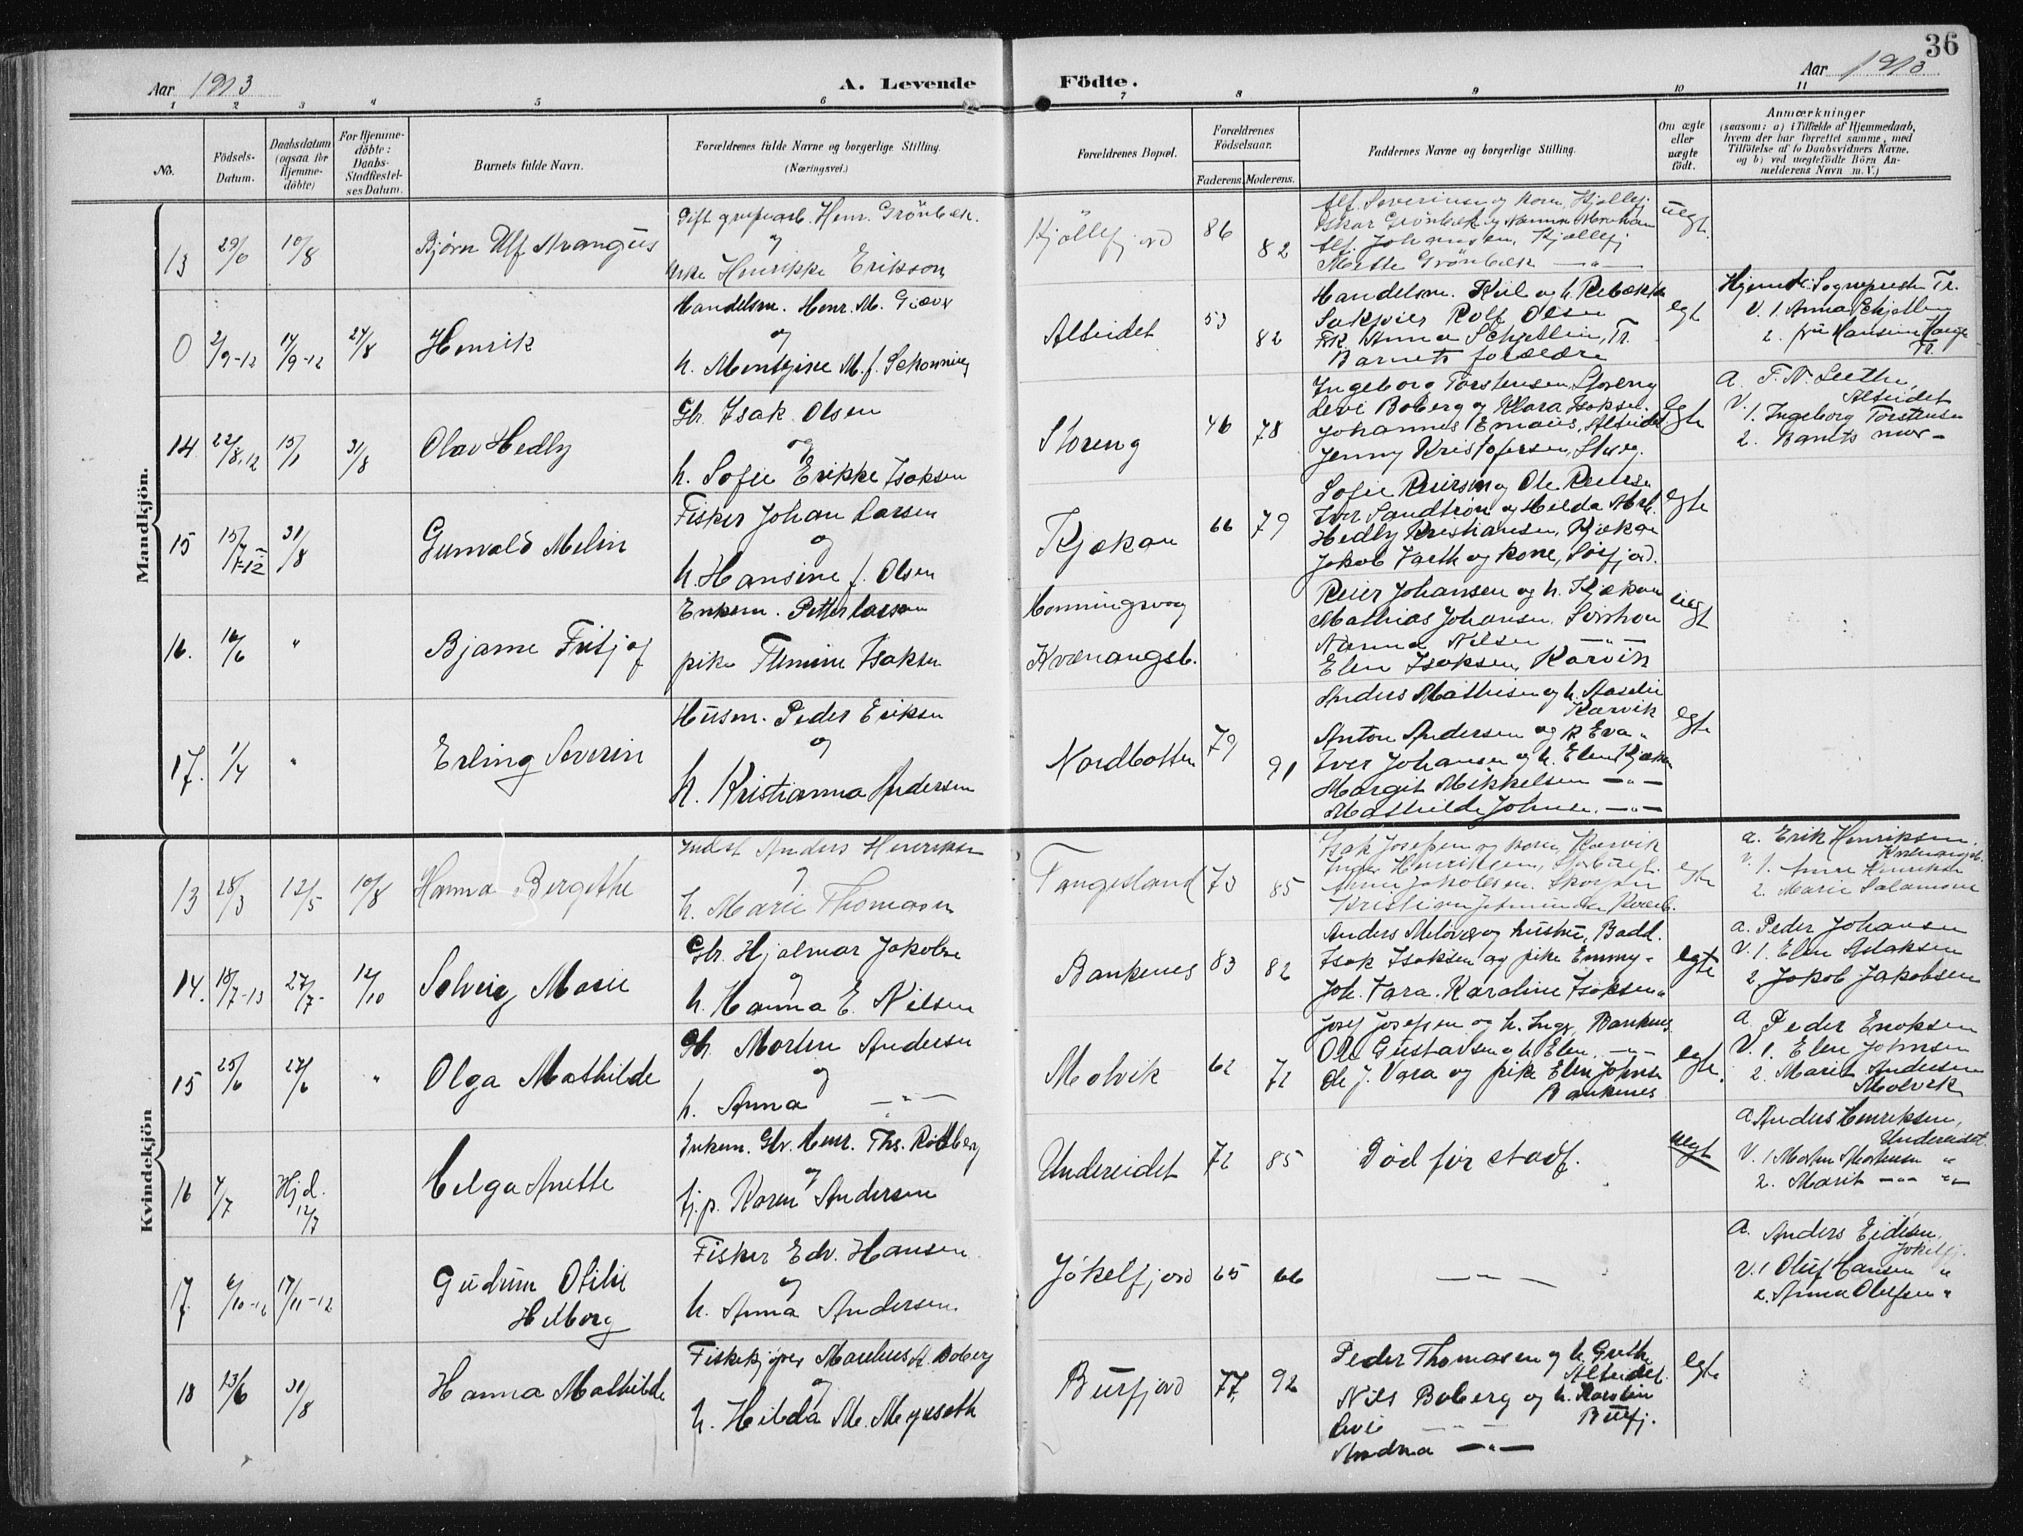 36
Aar 1913
A. Levende Födte.
Aar 1913
1 2 3 4 5 6 7 8 9 10 11
No.
Födsels-
Datum.
Daabsdatum
(ogsaa for
Hjemme-
döbte)
For Hjemme-
döbte:
Daabs-
Stadfæstel-
ses Datum.
Barnets fulde Navn.
Forældrenes fulde Navne og borgerlige Stilling.
(Næringsvei.)
Forældrenes Bopæl.
Forældrenes
Födselsaar.
Faderens. Moderens.
Faddernes Navne og borgerlige Stilling.
Om ægte
eller
uægte
födt.
Anmærkninger
(saasom: a) i Tilfælde af Hjemmedaab,
hvem der har forrettet samme, med
Tilföielse af to Daabsvidners Navne,
og b) ved uegtefödte Börn An-
melderens Navn m. V.)
Mandkjön.
13 29/6 10/8
Bjørn Ulf Mangus
Henr. Grönbæk
og
Henrikke Erikson
Kjöllefjord
86
82
Alf. Severinsen og kone, Kjøllefj.
Oskar Grönbæk og
Alf. Johansen, Kjøllefj
Mette Grönbæk — " —
uegt.
0 2/9-12 17/9-12 24/8
Henrik
Handelsm. Henr. M. Giæver
og
h. M. f. Schønning
Alteidet
53
82
Handelsm. Kiil og h. Rebekka
Rolf Olsen
Frk. Anna Schjelling, Tr.
Barnets forældre
egte
V. 1. Anna Schjelling
2. fru Hansine Hauge
Tr.
14. 22/8.12 15/1 31/8
Olav Hedly
Gbr. Isak Olsen
og
h. Sofie Erikke Isaksen
Storeng
46 78
Ingeborg Torstensen, Storeng
Levi Boberg og Klara Isaksen.
Johannes Emaus, Alteidet
Jenny Kristofersen, Storeng.
egte
a.
Alteidet
V. 1. Ingeborg Torstensen
2. Barnets mor —
15 15/7-12 31/8
Gunvald Melin
Fisker Johan Larsen
og
h. Hansine f. Olsen
Kjækan
66 79
Sofie Reiersen og Ole Reiersen
Iver Sandtrøn og Hilda
Hedly Kristiansen, Kjækan
Jakob og kone, Sørfjord.
egte
16. 16/6 "
Bjarne Fritjof
Enkem. Petter Larsen
pike Isaksen
Honningsvog
Kvænangsb.
Reier Johansen og h. Kjækan
Mathias Johansen,
Nanna Nilsen — " —
Elen Isaksen, Karvik
uegt
17. 1/4 "
Erling Severin
Husm. Peder Eriksen
og
h. Kristianna Andersen
Nordbotten
79
91
Anders Mathisen og h.
Karvik
Anton Andersen og k Eva "
Iver Johansen og h. Elen Kjækan
Margit Mikkelsen — " —
Mathilde Johnsen. — " —
egte
Kvindekjön
13 28/3 12/5 10/8
Hanna Bergethe
Indst Anders Henriksen
og
h. Marie Thomasen
Tangesland
73
85
Isak Josefsen og kone, Karvik
Inger Henriksen,
Anna Jakobsen.
Kristian
egte
a. Erik Henriksen.
Kvænangsb.
V. 1. Anne Henriksen
2. Marie Salamonsen
14. 18/7-13 27/7- 12/10
Solveig Marie
Gbr. Hjalmar Jakobsen
og
h. Hanna E. Nilsen
Bankenes
83 82
Anders og hustru, Badd.
Isak Isaksen og pike Emmy "
Joh. Vara. Karoline Isaksen "
egte
a. Peder Johansen
V. 1. Elen Aslaksen
2. Jakob Jakobsen
15 25/6 27/6 "
Olga Mathilde
Gbr. Morten Andersen
og
h. Anna — " —
Molvik
62
72
Josef Josefsen og h. Inga, Bankenes
Ole Gustavsen og h. Elen. — " —
Ole J. Vara og pike Elen Johnsen
Bankenes
egte.
a. Peder Enoksen
V. 1. Elen Johnsen
2. Marit Andersen
Molvik
16 7/7 Hjd.
12/7
Helga Anette
Enkem. Gbr. Henr. Ths. Rødberg
og
tj.p. Karen Andersen
Undereidet
72 85
Død før stadf.
uegt
a. Anders Henriksen,
Undereidet.
V. 1 Morten Mortensen "
2. Marit — " — "
17. 6/10-12 17/11-12
Gudrun Otilie
Helborg
Fisker Edv. Hansen
og
h. Anna Andersen
Jökelfjord
65 66
— — —
a. Anders Eidesen.
Jökelfj.
V. 1 Oluf Hansen "
2. Anna Olufsen "
18 23/6 31/8
Hanna Mathilde
Fiskekjøper Markus A. Boberg
og
h. Hilda M. Myrseth
Burfjord
77. 92
Peder Thomasen og h. Grethe
Alteidet.
Nils Boberg og h. Karolin
Burfj.
Levi — " —
Andrea — " —
egte